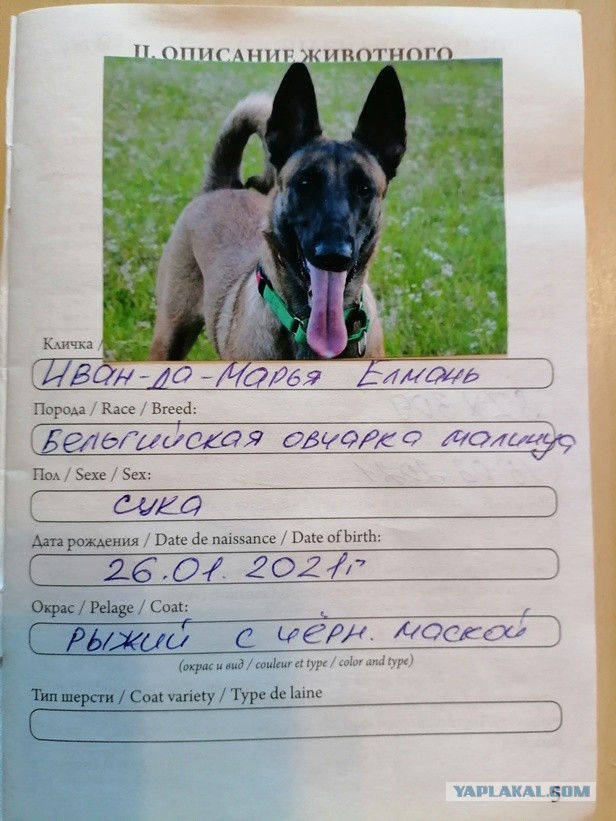 II. ОПИСАНИЕ ЖИВОТНОГО
Кличка /
Иван-да-Марья Елмань
Порода / Race / Breed:
Бельгийская овчарка малинуа
Пол / Sexe / Sex:
сука
Дата рождения / Date de naissance / Date of birth:
26.01.2021г
Окрас / Pelage / Coat:
рыжий с чёрн. маской
(окрас и вид / couleur et type / color and type)
Тип шерсти / Coat variety / Type de laine
5
YAPLAKAL.COM